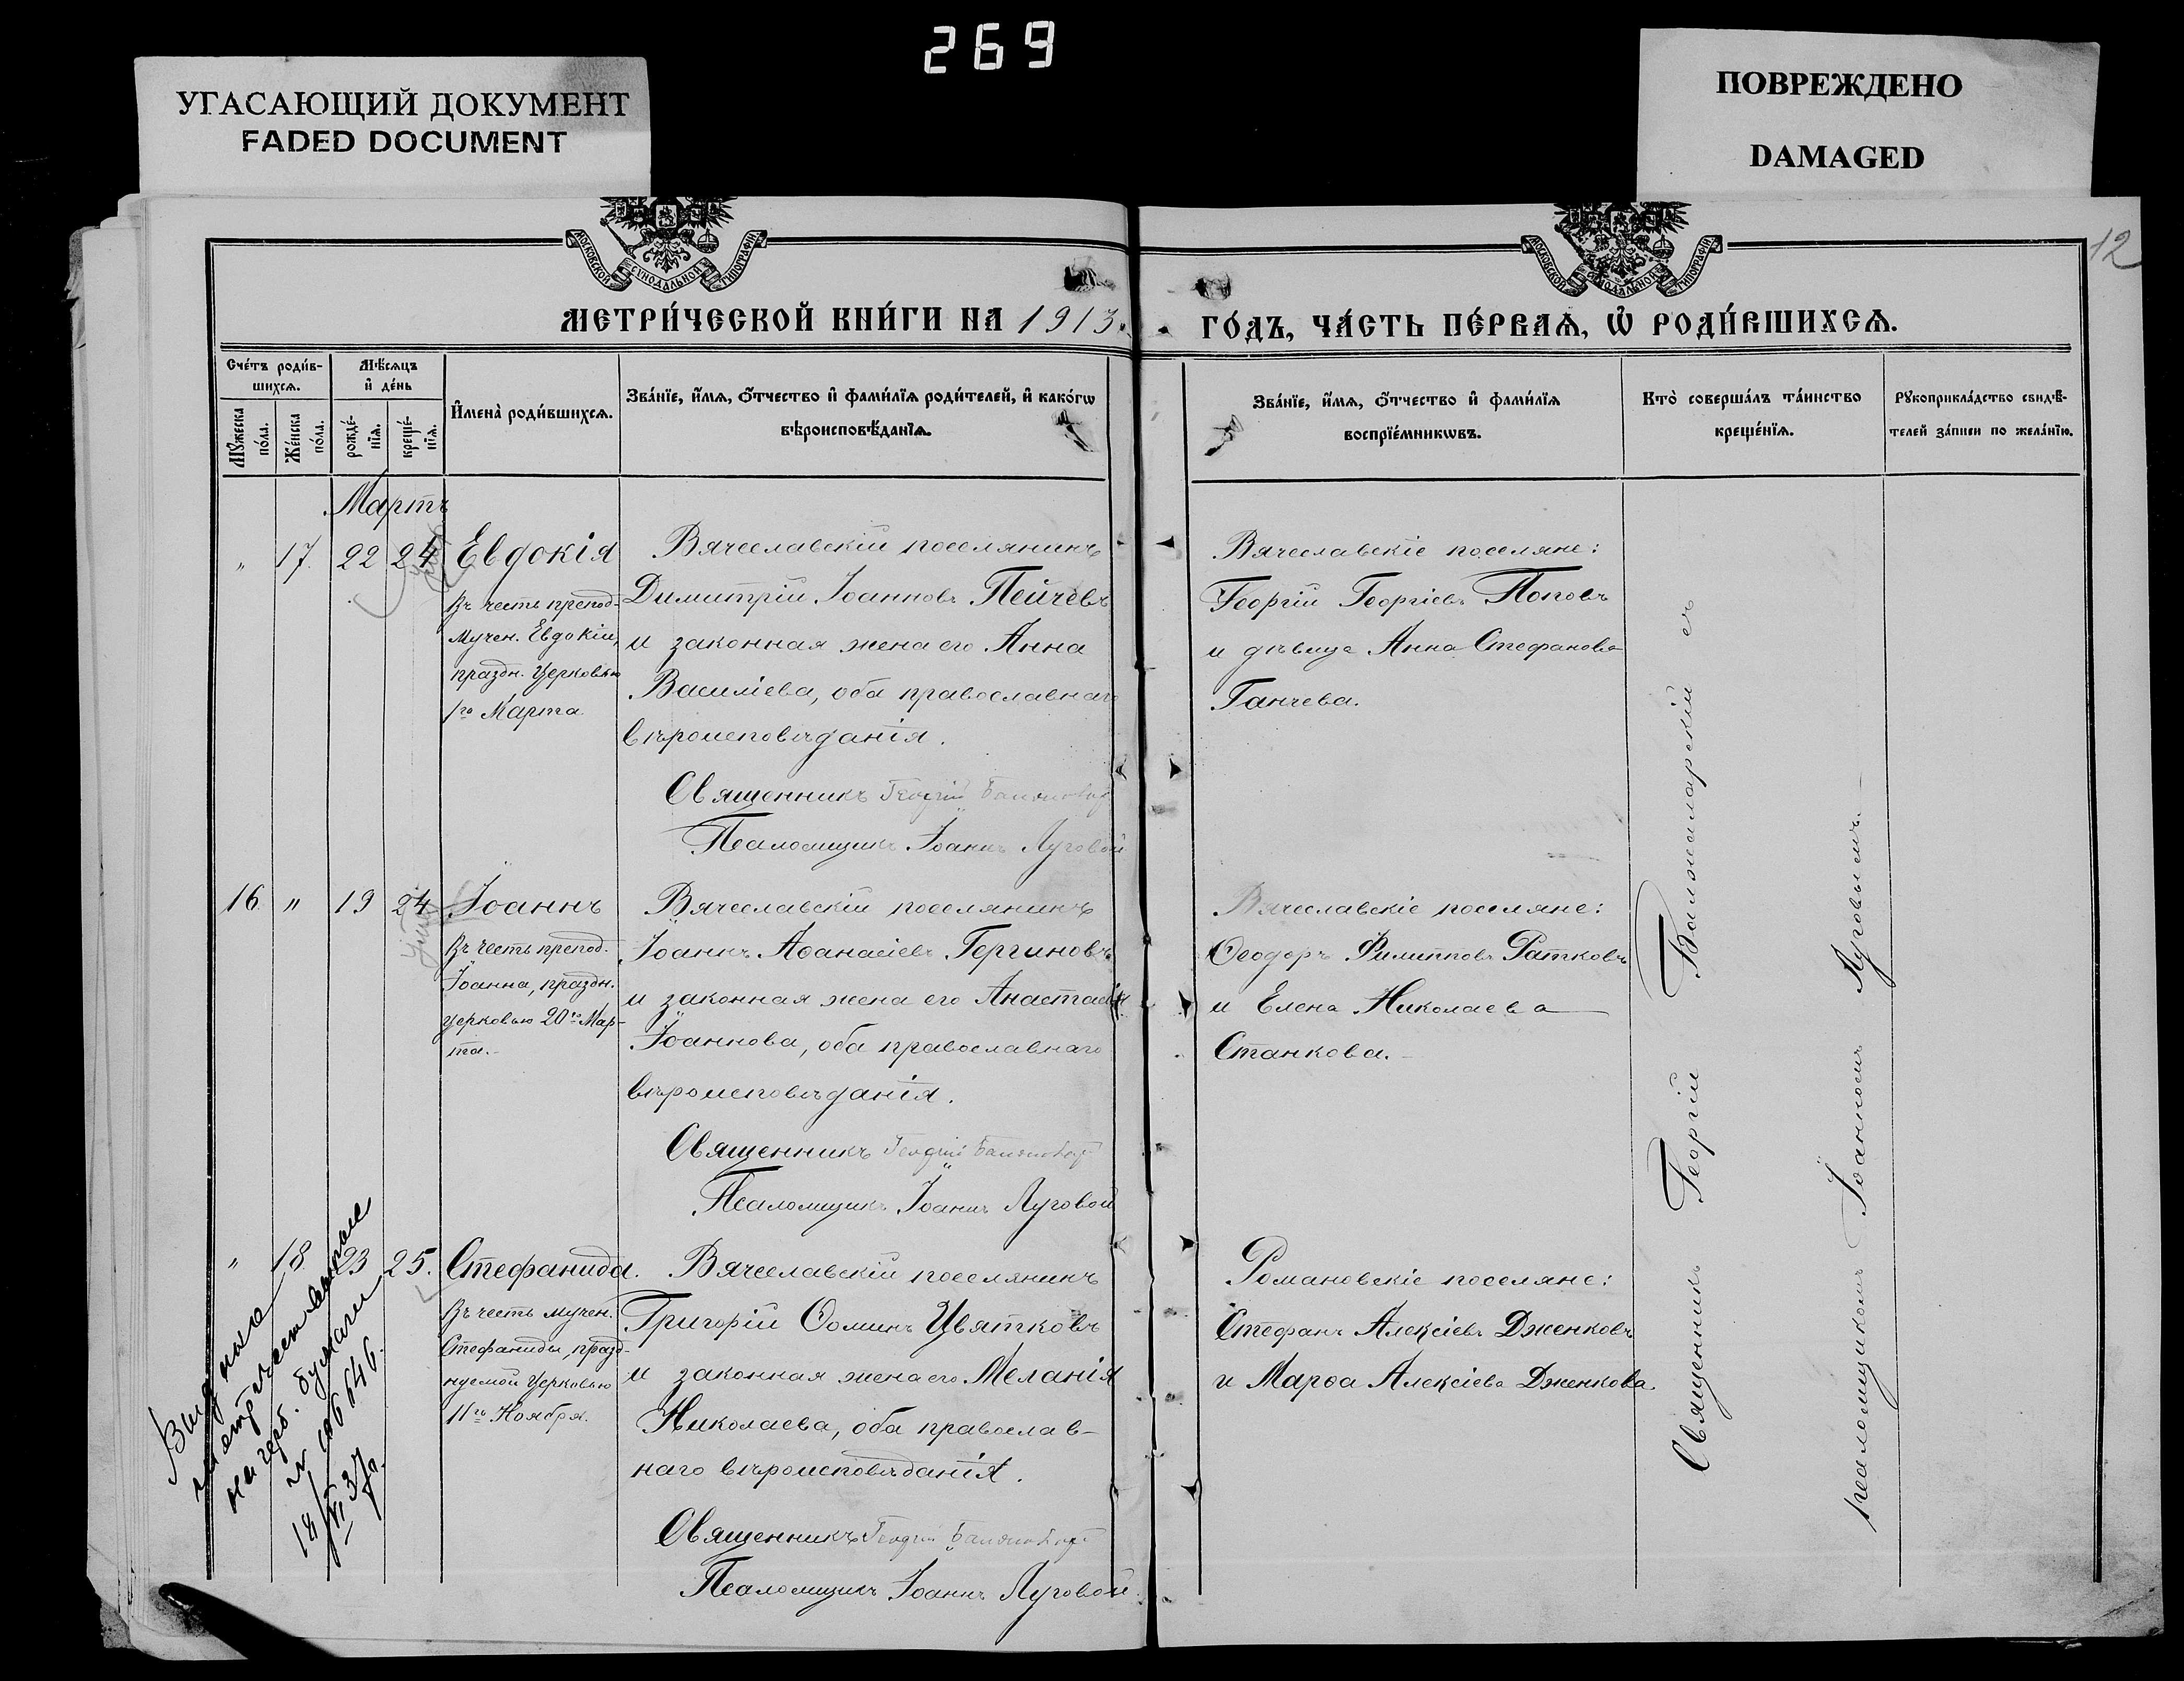 269
УГАСАЮЩИЙ ДОКУМЕНТ
FADED DOCUMENT
ПОВРЕЖДЕНО
DAMAGED
МОСКОВСКОЙ СѴНОДАЛЬНОЙ ТИПОГРАФІИ
МОСКОВСКОЙ СѴНОДАЛЬНОЙ ТИПОГРАФІИ
12
МЕТРИ́ЧЕСКОЙ КНИ́ГИ НА 1913
ГО́ДЪ, ЧА́СТЬ ПЕ́РВАѦ, Ѡ҆ РОДИ́ВШИХСѦ.
Сче́тъ роди́в-
шихсѧ.
Мѣ́сѧцъ
и҆ де́нь
Мꙋ́жеска
по́ла.
Же́нска
по́ла.
рожде́-
нїѧ.
креще́-
нїѧ.
И҆мена̀ роди́вшихсѧ.
Зва́нїе, и҆́мѧ, ѻ҆́тчество и҆ фами́лїѧ роди́телей, и҆ како́гѡ
вѣроисповѣ́данїѧ.
Зва́нїе, и҆́мѧ, ѻ҆́тчество и҆ фами́лїѧ
воспрїе́мникѡвъ.
Кто̀ соверша́лъ та́инство
креще́нїѧ.
Рꙋкоприкла́дство свидѣ́-
телей за́писи по жела́нїю.
Мартъ
" 17. 22 24 Евдокія
Въ честь препод.
мучен. Евдокіи,
праздн. Церковью
1го Марта.
Вячеславскій поселянинъ
Димитрій Іоанновъ Пейчевъ
и законная жена его Анна
Василіева, оба православнаго
вѣроисповѣданія.
Священникъ Георгій
Псаломщикъ Іоаннъ Луговой
Вячеславскіе поселяне:
Георгій Георгіевъ Поповъ
и дѣвица Анна Стефанова
Ганчева.
16 " 19 24 Іоаннъ
Въ честь препод.
Іоанна, праздн.
церковью 20го Мар-
та.
Вячеславскій поселянинъ
Іоаннъ Аѳанасіевъ Гергиновъ
и законная жена его Анастасія
Іоаннова, оба православнаго
вѣроисповѣданія.
Священникъ Георгій
Псаломщикъ Іоаннъ Луговой
Вячеславскіе поселяне:
Ѳеодоръ Филипповъ Ратковъ
и Елена Николаева
Станкова.
" 18 23 25. Стефанида.
Въ честь мучен.
Стефаниды, празд-
нуемой Церковью
11го Ноября.
Вячеславскій поселянинъ
Григорій Ѳоминъ Цвятковъ
и законная жена его Меланія
Николаева, оба православ-
наго вѣроисповѣданія.
Священникъ Георгій
Псаломщикъ Іоаннъ Луговой
Романовскіе поселяне:
Стефанъ Алексіевъ Дженковъ
и Марѳа Алексіева Дженкова.
Священникъ Георгій съ
псаломщикомъ Іоанномъ Луговымъ.
Выдано
на герб. бумаги